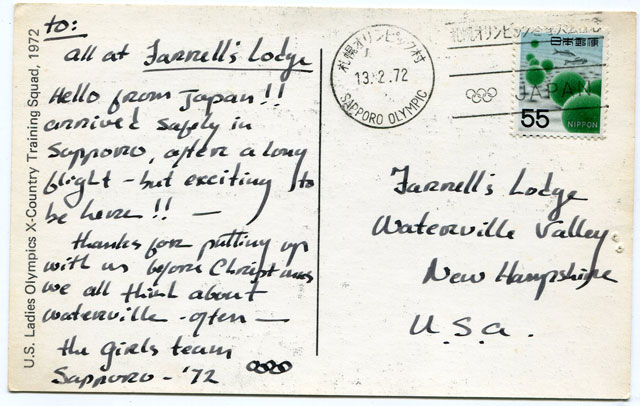 to:
all at Farnell's Lodge
Hello from Japan!!
arrived safely in
Sapporo, after a long
flight - but exciting to
be here!! —
thanks for putting up
with us before Christmas
we all think about
Waterville - often —
the girls team
Sapporo - '72
U.S. Ladies Olympics X-Country Training Squad, 1972
札幌オリンピック村
13.2.72
SAPPORO OLYMPIC
JAPAN
日本郵便
55
NIPPON
Farnell's Lodge
Waterville Valley
New Hampshire
U.S.a.